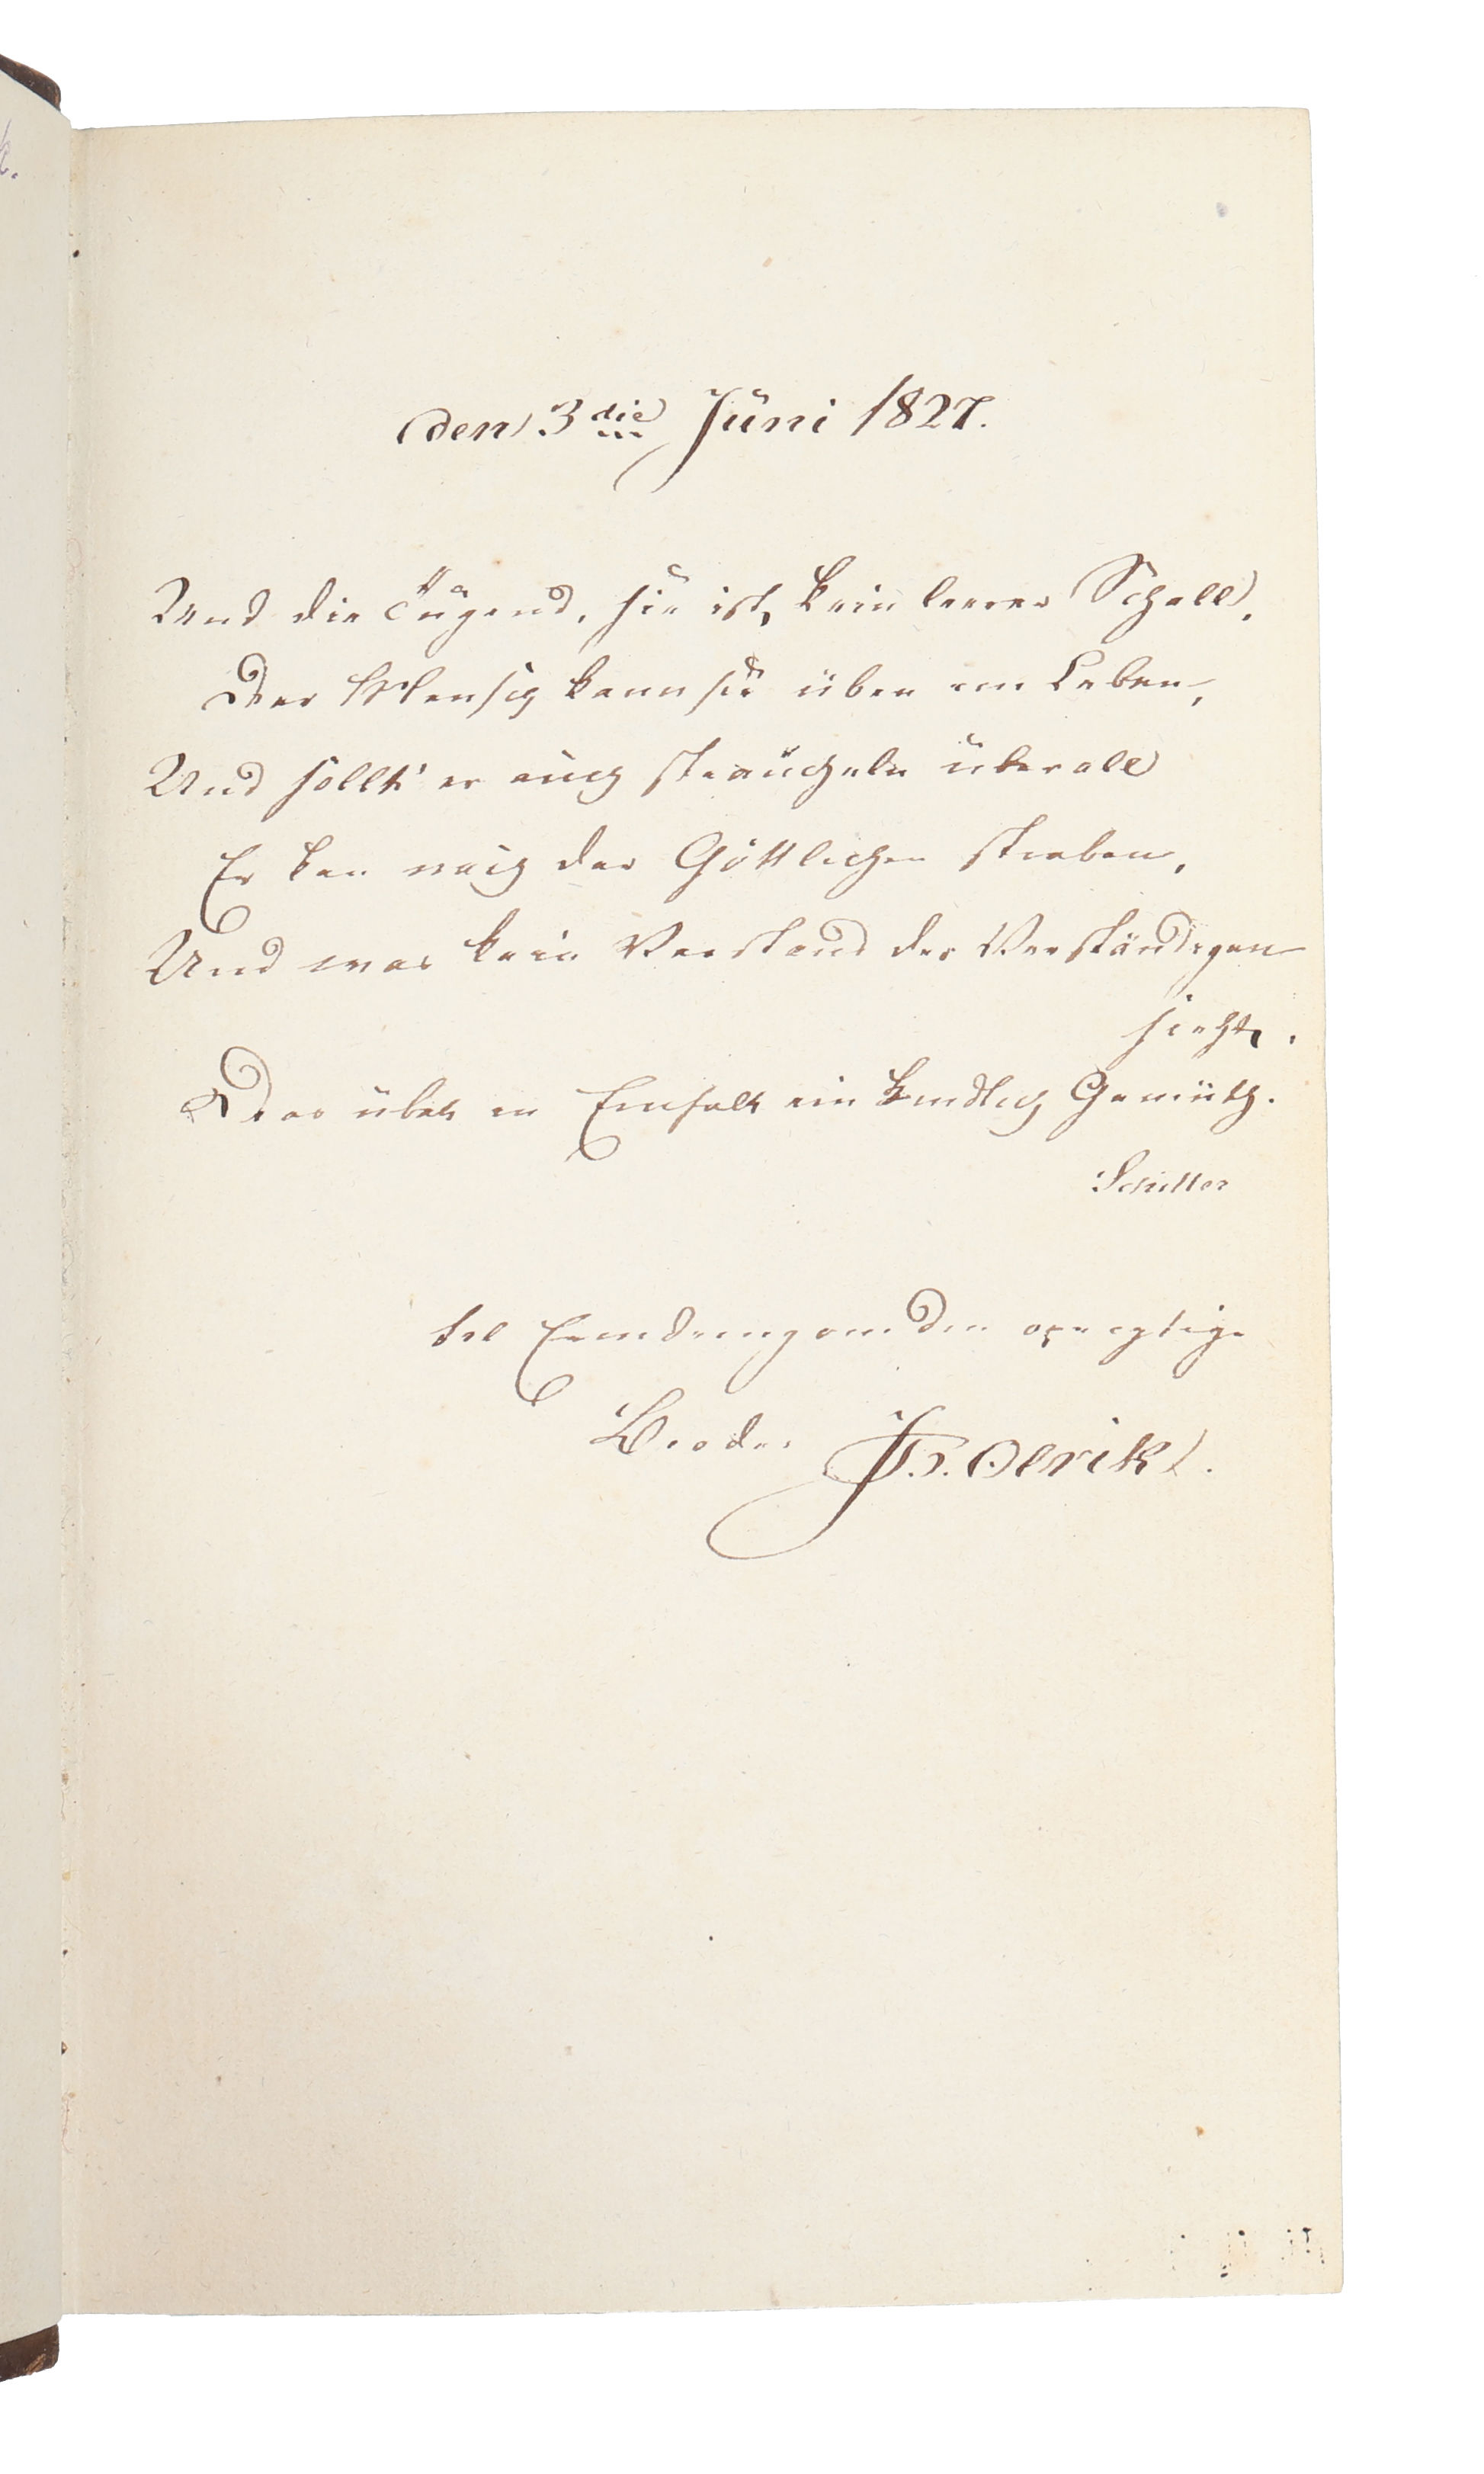 den 3die Juni 1827.
Und die Tugend, sie ist kein leerer Schall,
Der Mensch kann sie üben im Leben,
Und sollt' er auch straucheln überall
Er kan nach der Göttlichen streben,
Und was kein Verstand der Verständigen
sieht,
Das übet in Einfalt ein kindlich Gemüth.
Schiller
til Erindring om Din oprigtige
Broder